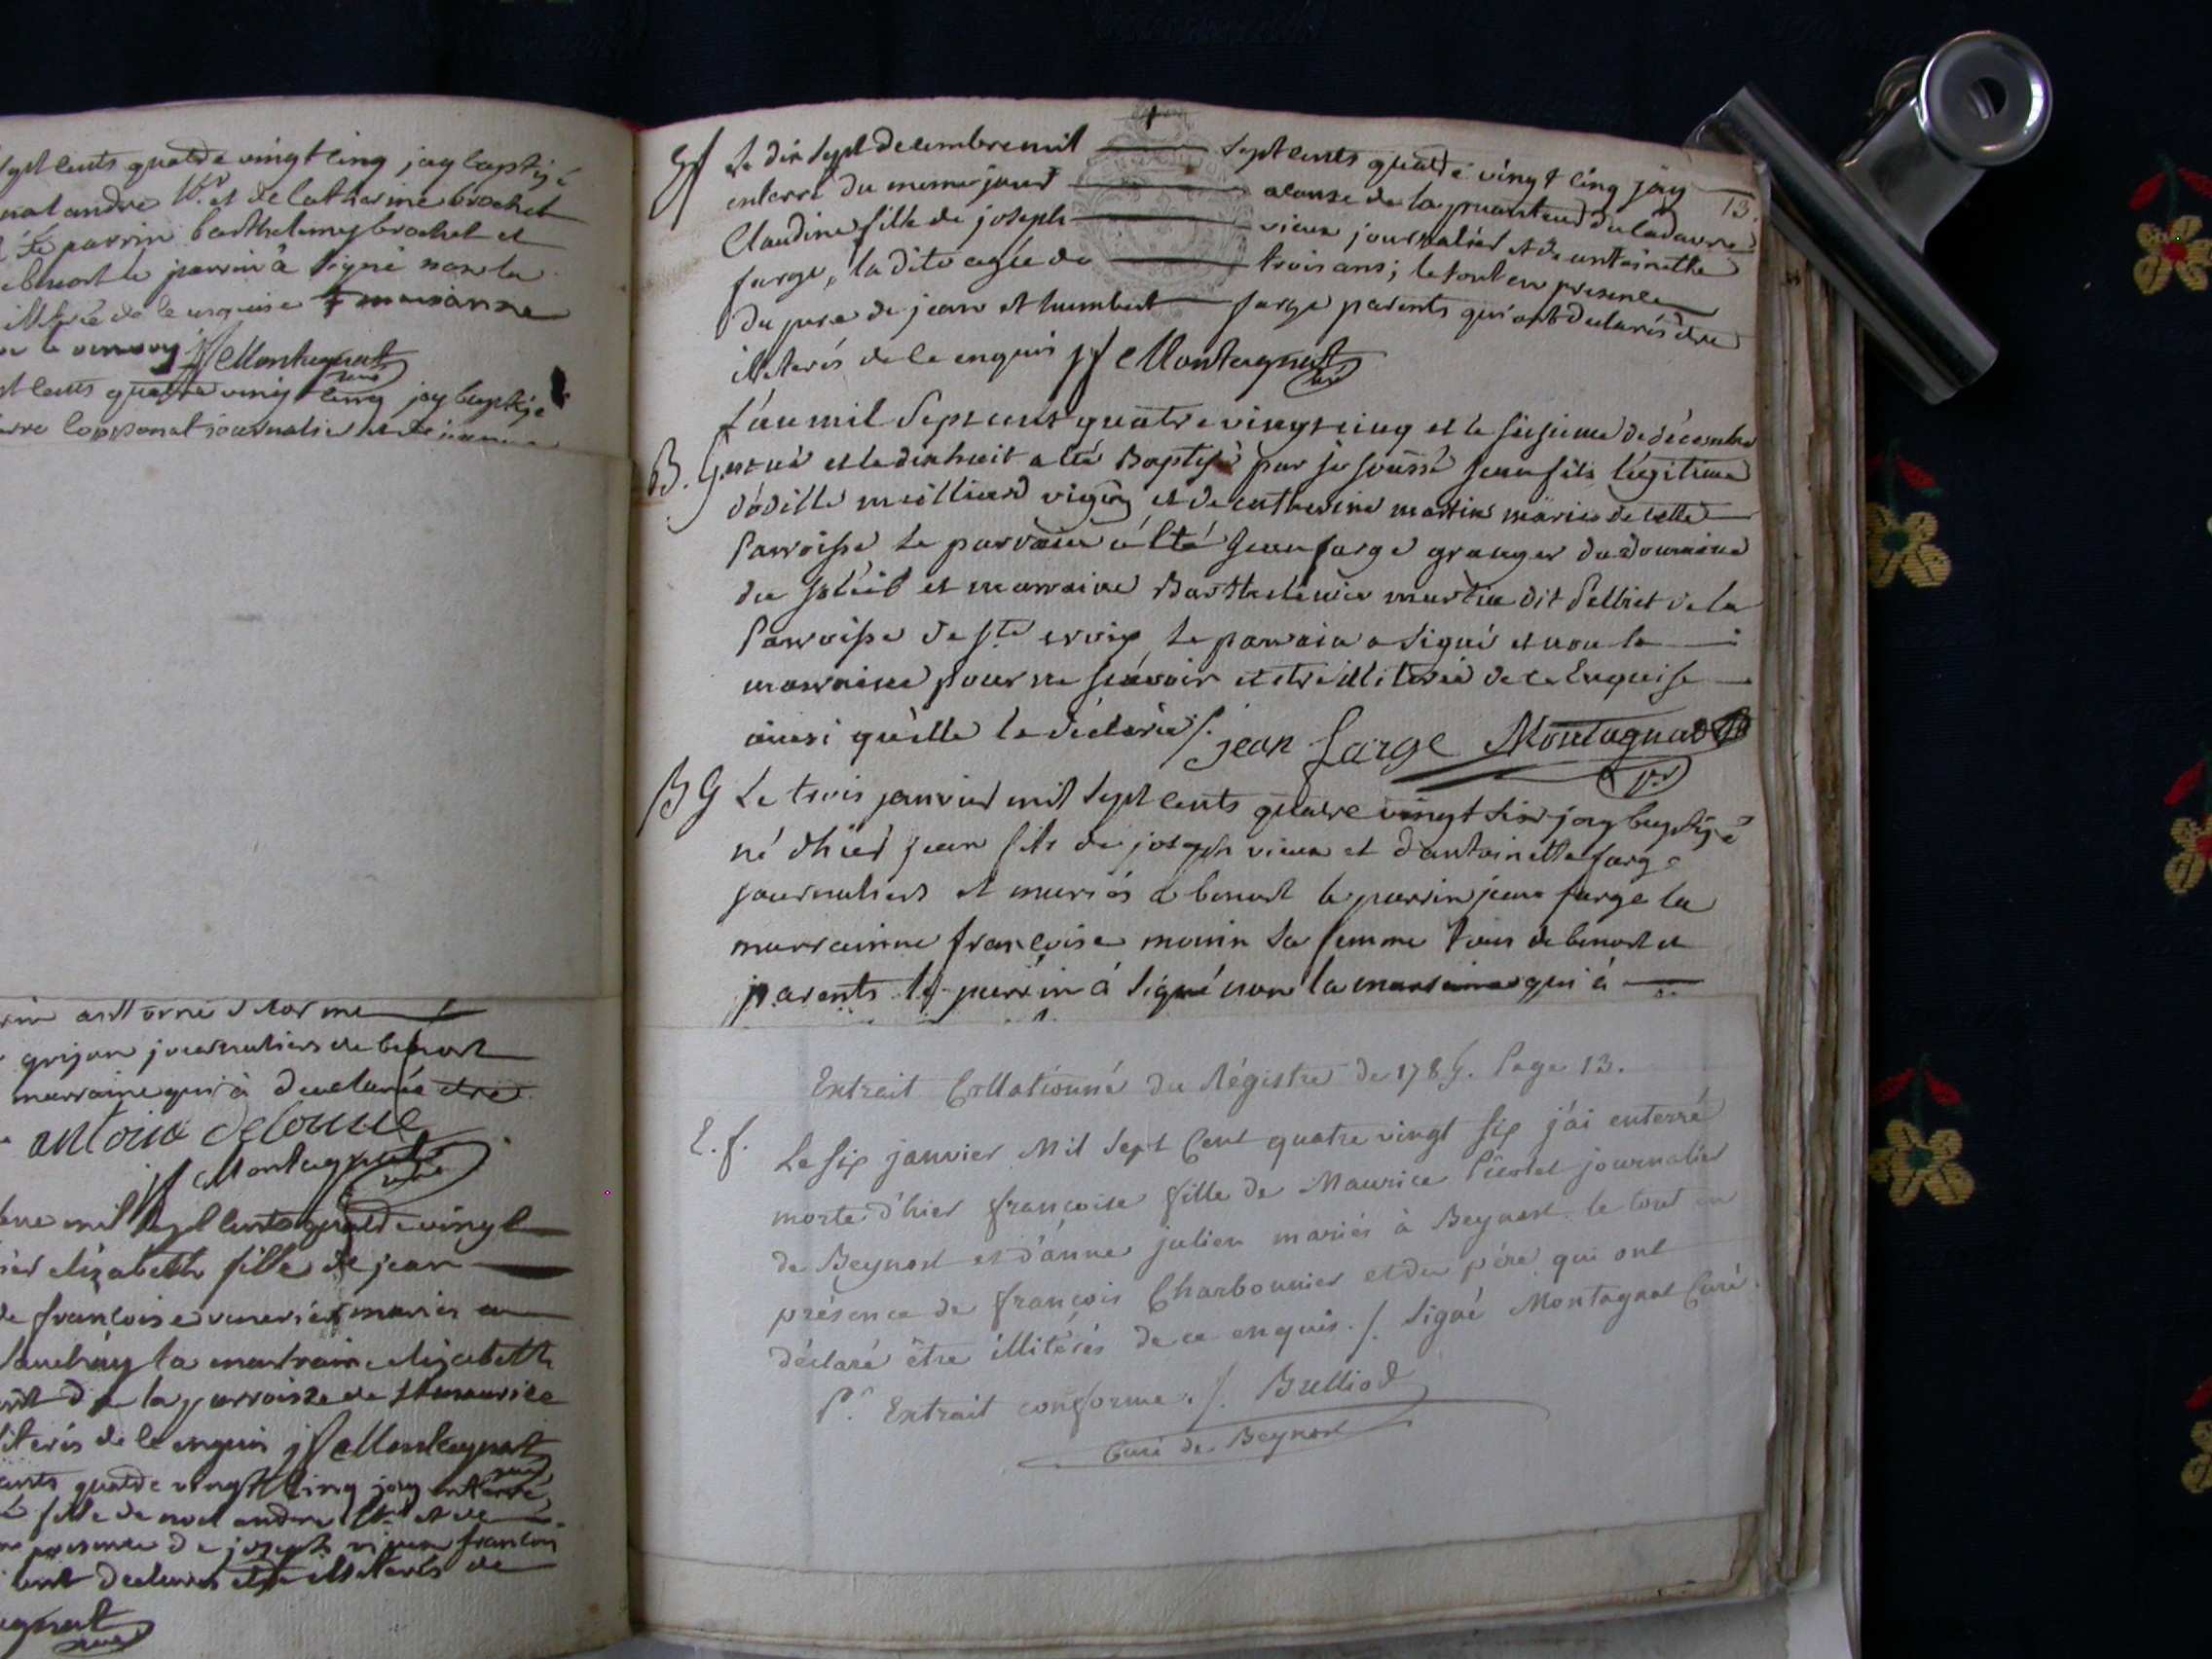 sept cents quatre vingt cinq jay baptisé
andre et de catherine brochet
Le parrin barthelemy brochet et
benost le parrin à signé non la
de ce enquise
jf Montagnat
cents quatre vingt cinq jay baptisé
journalie
grijon journaliers de benost
marraine qui à declarée etre
antoine delorme
jf Montagnat
mil sept cents quatre vingt
elizabeth fille de jean
de francoise mariés
la marraine elizabeth
de la parroisse de st maurice
de ce enquis jf Montagnat
cents quatre vingt cinq jay enterré
fille de noel andre et de
presence de joseph francois
ont declarés etre illiterés de
13.
Le dix sept decembre mil sept cents quatre vingt cinq jay
enterré du meme jour acause de la puanteur du cadavre
Claudine fille de joseph vieux journalier et de antoinette
farge, la dite agée de trois ans; le tout en presence
du pere de jean et humbert farge parents qui ont declarés etre
illiterés de ce enquis jf Montagnat
L'an mil sept cent quatre vingt cinq et le seizieme de décembre
B. G. est né et le dix huit a été Baptisé par je soussé jean fils légitime
d'odille meilliard vigñ et de catherine martin mariés de cette
Parroisse le parrain a été Jean farge granger du Domaine
du soleil et marraine Barthelemie martin dit Pelliet de la
Parroisse de Ste croix Le parrain a signé et non la
marraine pour ne sçavoir et etre illiterée de ce Enquise
ainsi qu'elle la déclaré /. jean farge Montagnat
B G Le trois janvier mil sept cents quatre vingt six jay baptisé
né d'hier jean fils de joseph vieux et d'antoinette farge
journaliers et mariés a benost le parrin jean farge la
marrainne francoise monin sa femme tous de benost et
parents le parrin à signé non la marraine qui à
Extrait Collationné du Régistre de 1785. Page 13.
E. f. Le six janvier Mil Sept Cent quatre vingt six j'ai enterré
morte d'hier françoise fille de Maurice journalier
de Beynost et d'anne julien mariés à Beynost le tout en
présence de françois Charbonnier et du pére qui ont
déclaré être illitérés de ce enquis ./. Signé Montagnat Curé.
Pr. Extrait conforme ./. Bulliod
Curé de Beynost